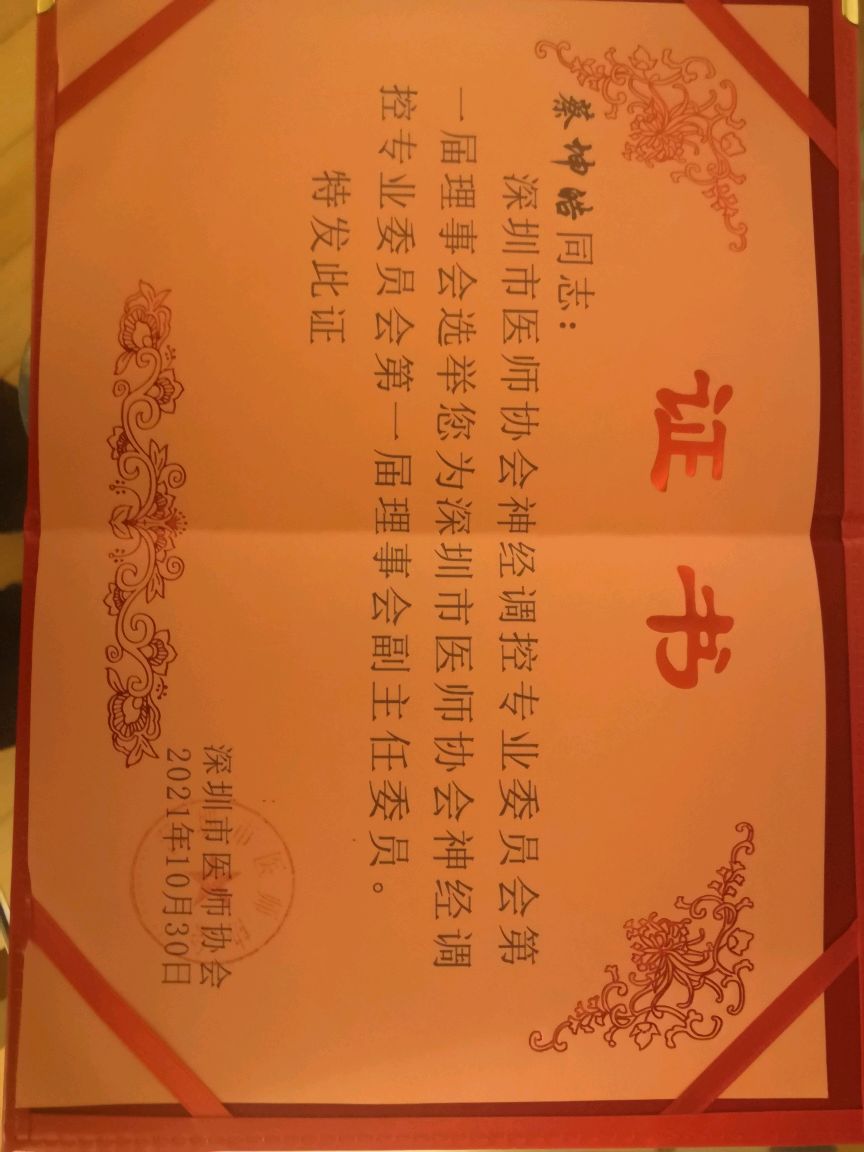 证书
蔡坤皓同志：
深圳市医师协会神经调控专业委员会第
一届理事会选举您为深圳市医师协会神经调
控专业委员会第一届理事会副主任委员。
特发此证
深圳市医师协会
2021年10月30日